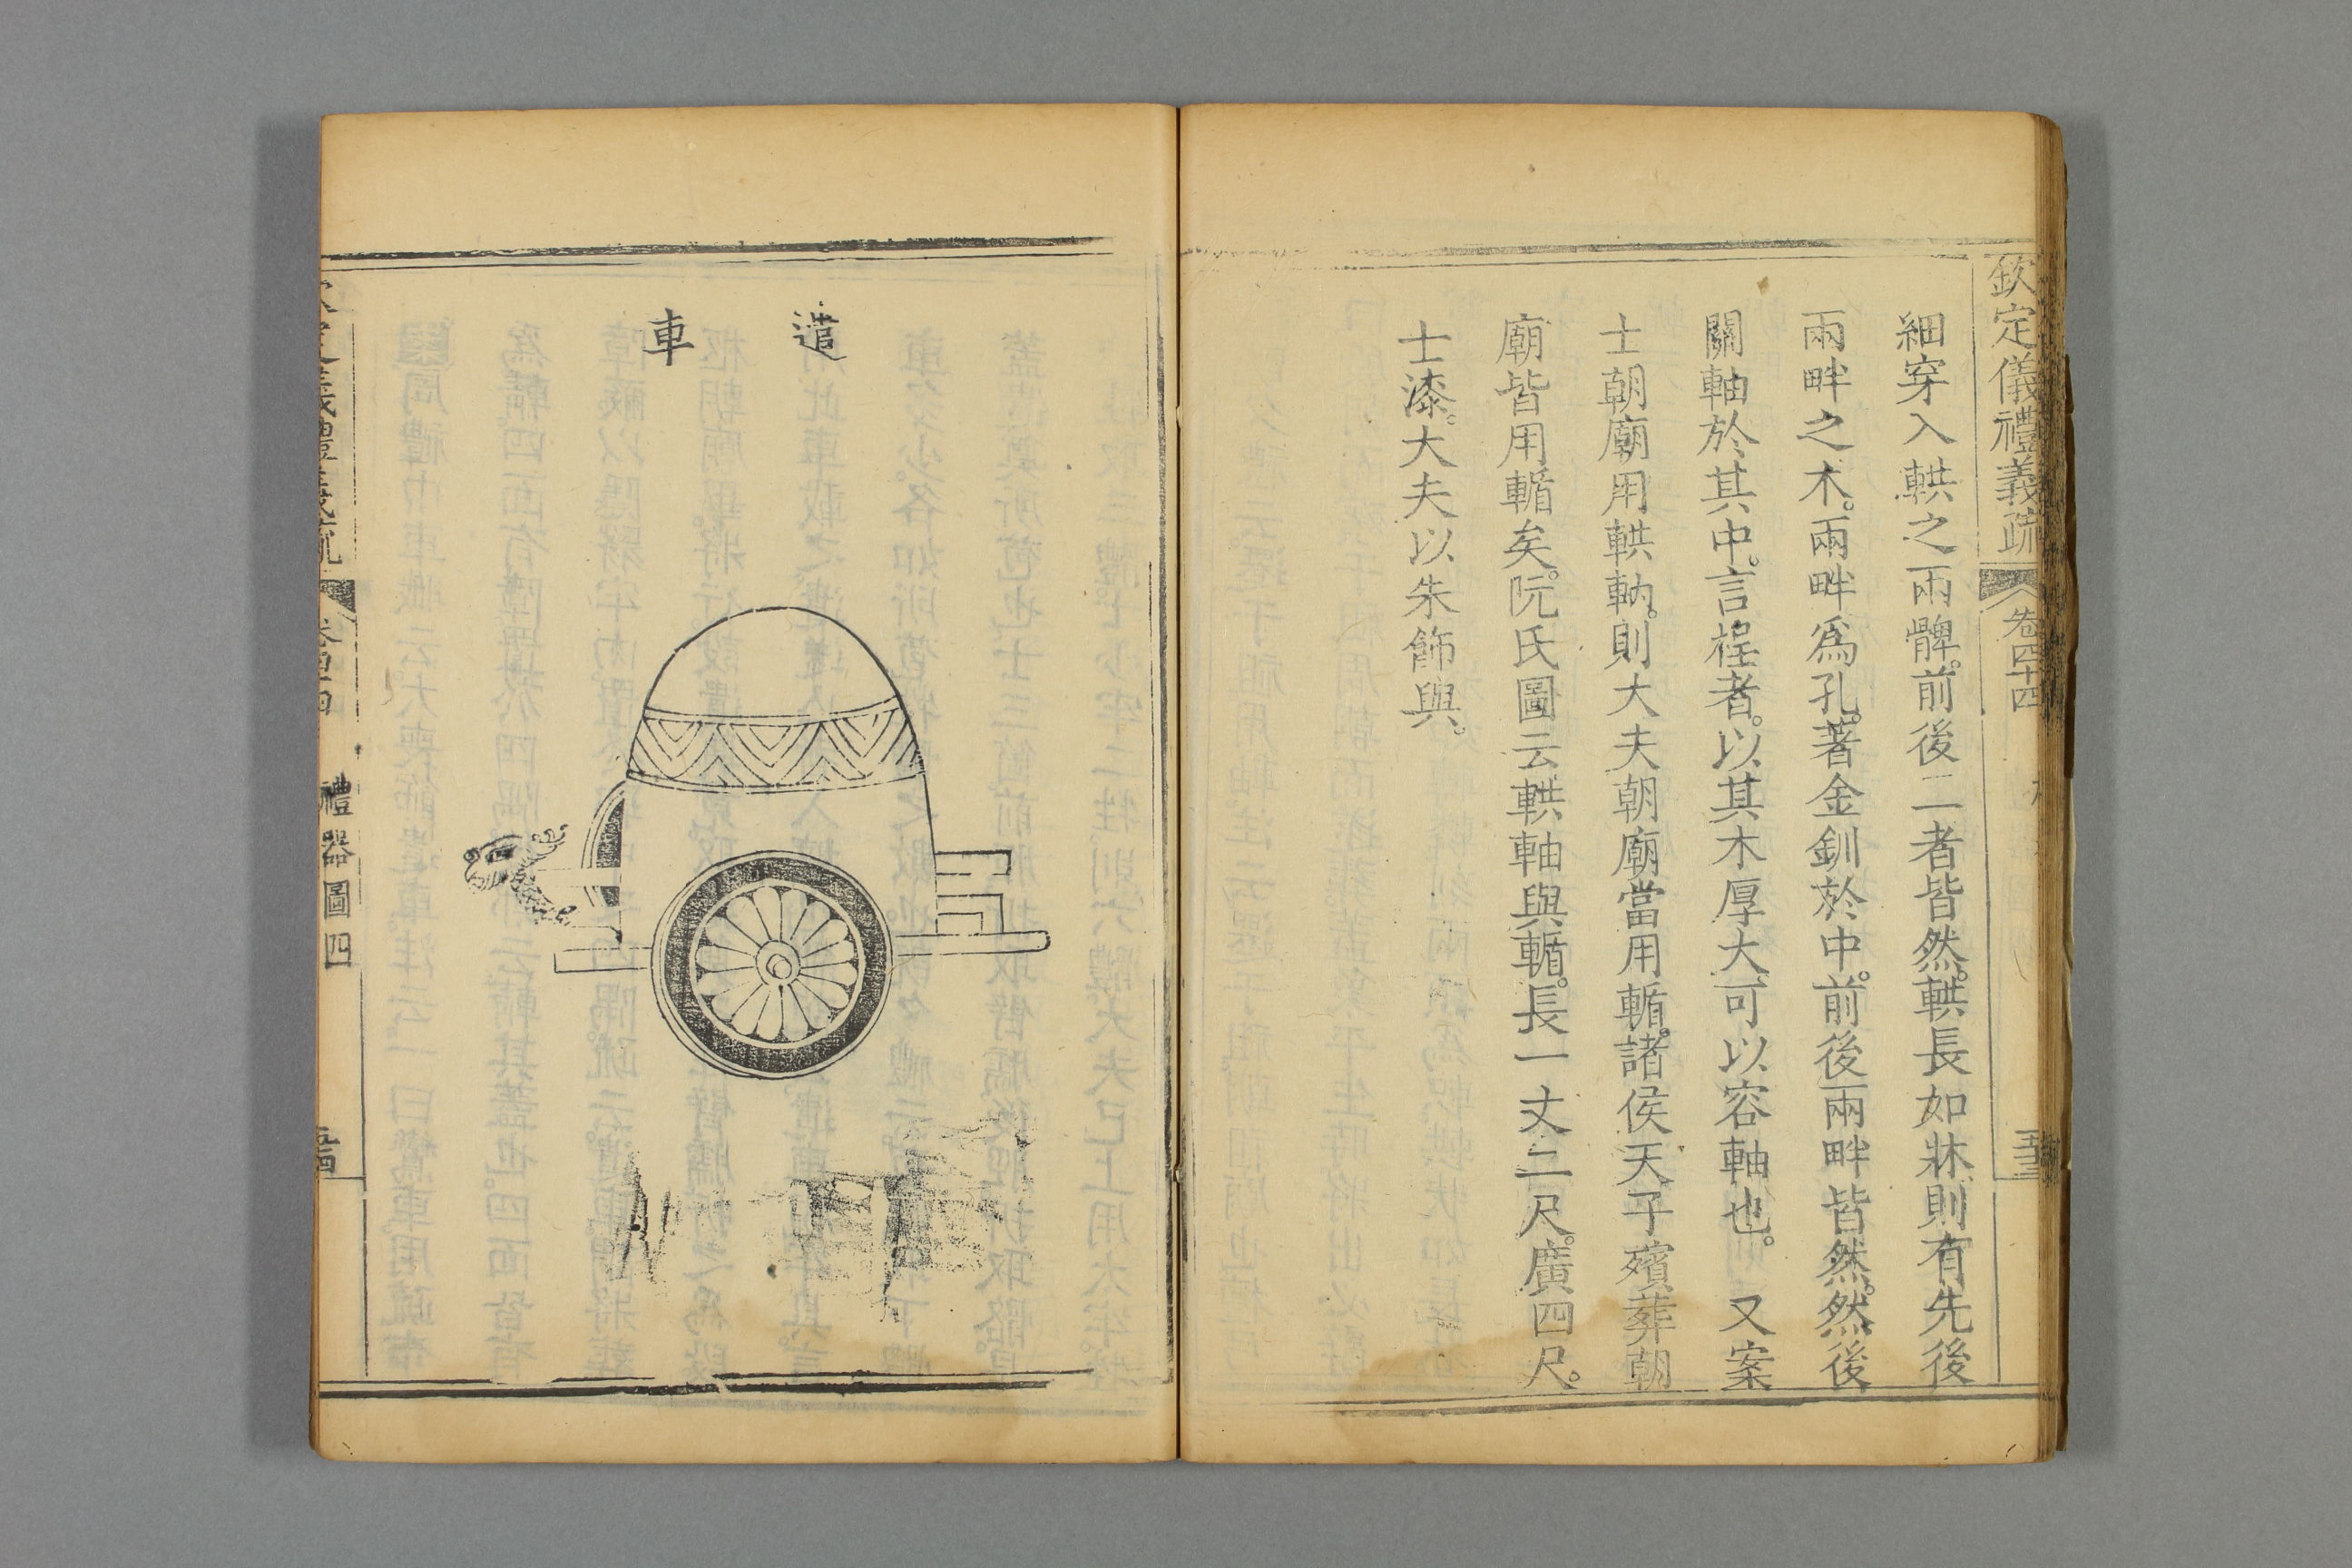 欽定儀禮義疏 卷四十四
細穿入輁之兩髀。前後二者皆然。輁長如牀。則有先後
兩畔之木。兩畔爲孔。著金釧於中。前後兩畔皆然。然後
關軸於其中。言桯者。以其木厚大。可以容軸也。 又案
士朝廟用輁軸。則大夫朝廟當用輴。諸侯天子殯葬朝
廟皆用輴矣。阮氏圖云輁軸與輴。長一丈二尺。廣四尺。
士漆。大夫以朱飾與。
遣車
儀禮義疏 卷四十四 禮器圖四